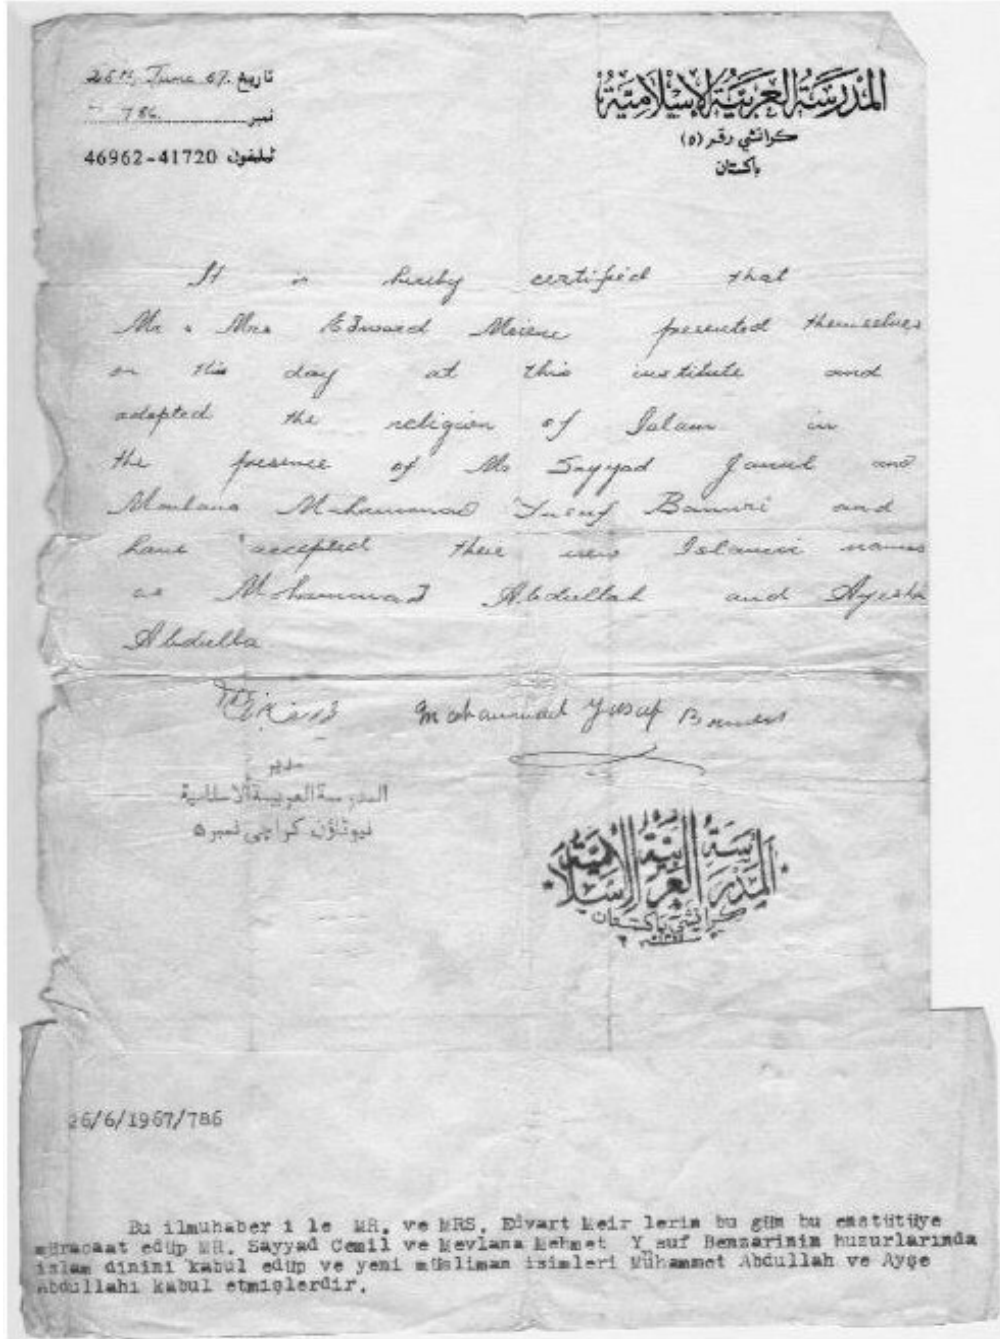 26th, June 67. تاريخ
786. نمبر
ٹیلیفون 41720-46962
المدرسة العربية الإسلامية
كراتشي رقم (٥)
باكستان
It is hereby certified that
Mr & Mrs Edward presented themselves
on this day at this institute and
adopted the religion of Islam in
the presence of Mr Sayyad Jamil and
Maulana Muhammad Yusuf Banuri and
have accepted their new Islamic names
as Mohammad Abdullah and Ayesha
Abdulla.
Mohammad Yusuf
مدير
المدرسة العربية الاسلامية
نيوٹاؤن كراچی نمبر ٥
المدرسة العربية الإسلامية
كراتشي باكستان
26/6/1967/786
Bu ilmuhaber i le MR. ve MRS. Edvart Meir lerin bu gün bu enstütüye
müracaat edüp MR. Sayyad Cemil ve Mevlana Mehmet Y suf Benzarinin huzurlarında
islam dinini kabul edüp ve yeni müsliman isimleri Mühammet Abdullah ve Ayşe
Abdullahi kabul etmişlerdir.